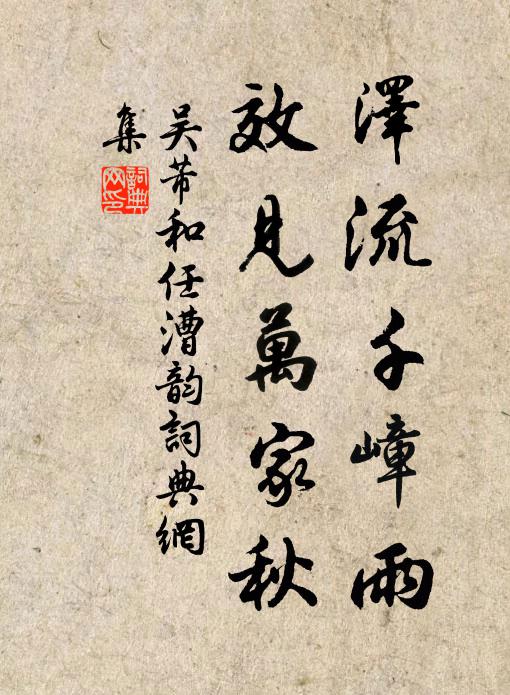 澤流千嶂雨
效見萬家秋
吴芾和任漕韵詞典網
集
詞典網印